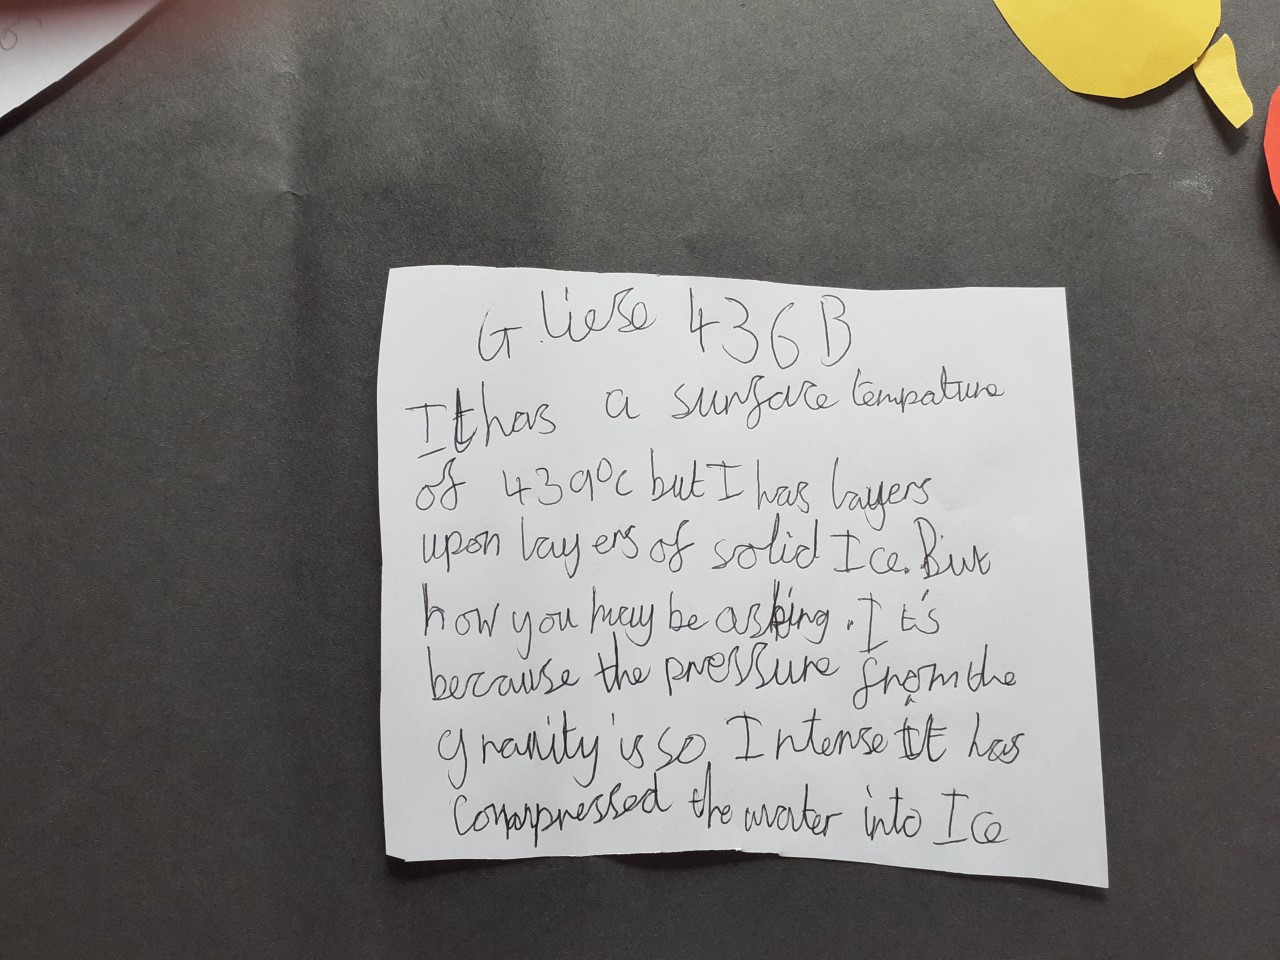 Gliese 436 B
It has a surface tempature
of 439°c but I has layers
upon layers of solid Ice. But
how you may be asking. It's
because the pressure from the
gravity is so Intense It has
compressed the water into Ice